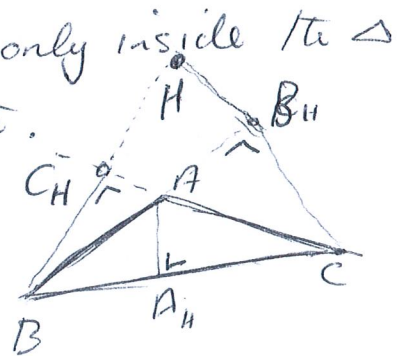 only inside the Δ
H
B_H
C_H
A
C
A_H
B